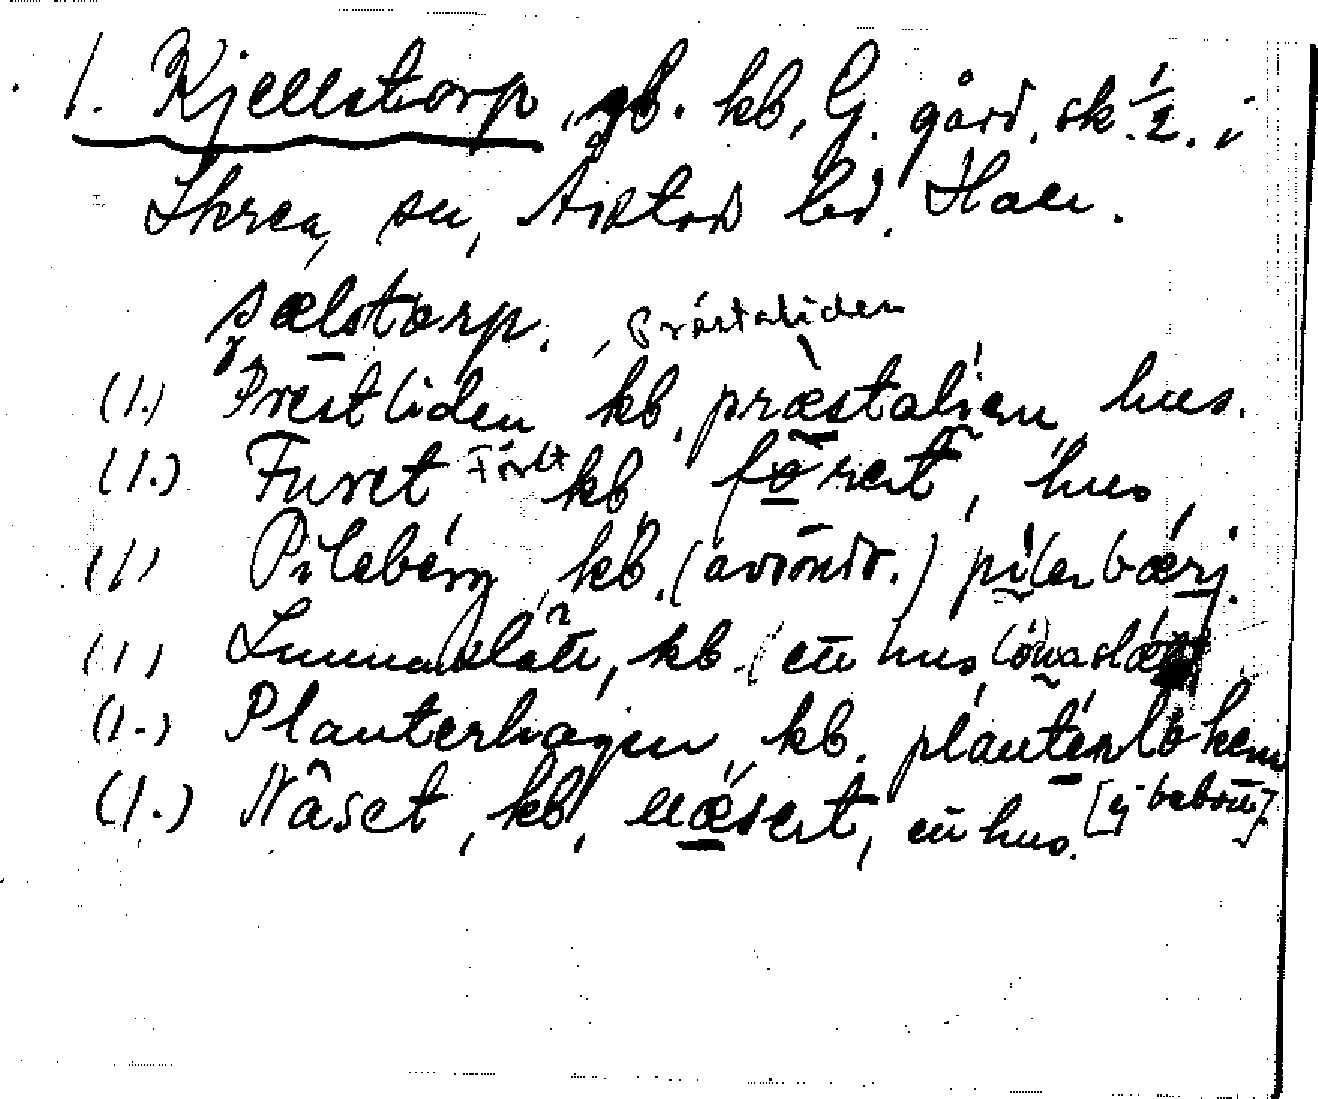 1. Kjellstorp, gb. kb, G. gård. sk. 1/2. i
Skrea, sn, Årstad hd. Hall.
sælstarp. , Präståliden
(1.) Prestliden kb. præstalien hus.
(1.) Furet kbføret, hus,
(1) Pileberg, kb. (avsönd.) pilabærj.
(1) Lunnaslätt, kb. (ett hus lönaslæt
(1.) Planterhagen, kb. planterhøken
(1.) Näset, kb. næset, ett hus. [ej bebott]